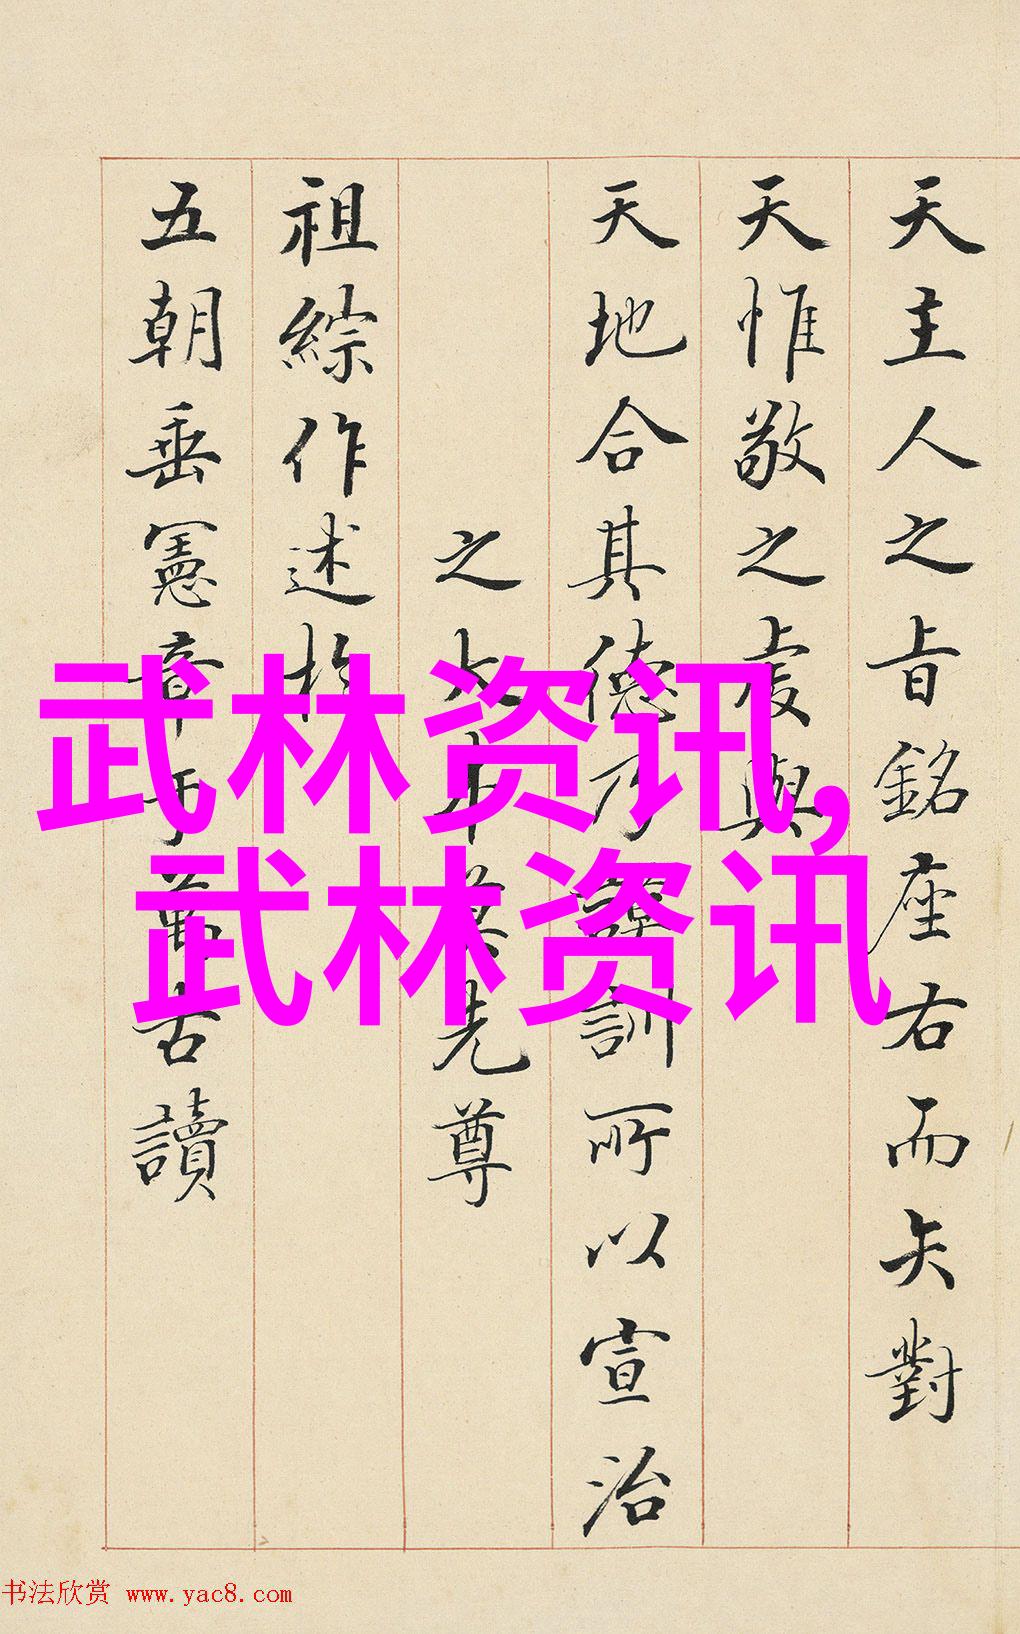 天主人之旨銘座右而矢對
天惟敬之虔與
天地合其德乃謨訓所以宣治
之大本莫先尊
祖綜作述於
五朝垂憲章于萬古讀
武林资讯,
武林资讯
书法欣赏 www.yac8.com